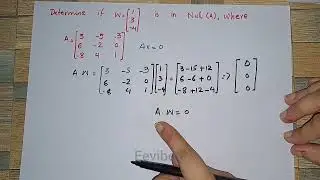 Determine if W = [1 3 -4] is in Nul (A), where
A = [3 -5 -3 6 -2 0 -8 4 1] Ax = 0
A.W = [3 -5 -3 6 -2 0 -8 4 1] [1 3 -4] = [3-15+12 6-6+0 -8+12-4] => [0 0 0]
A.W = 0